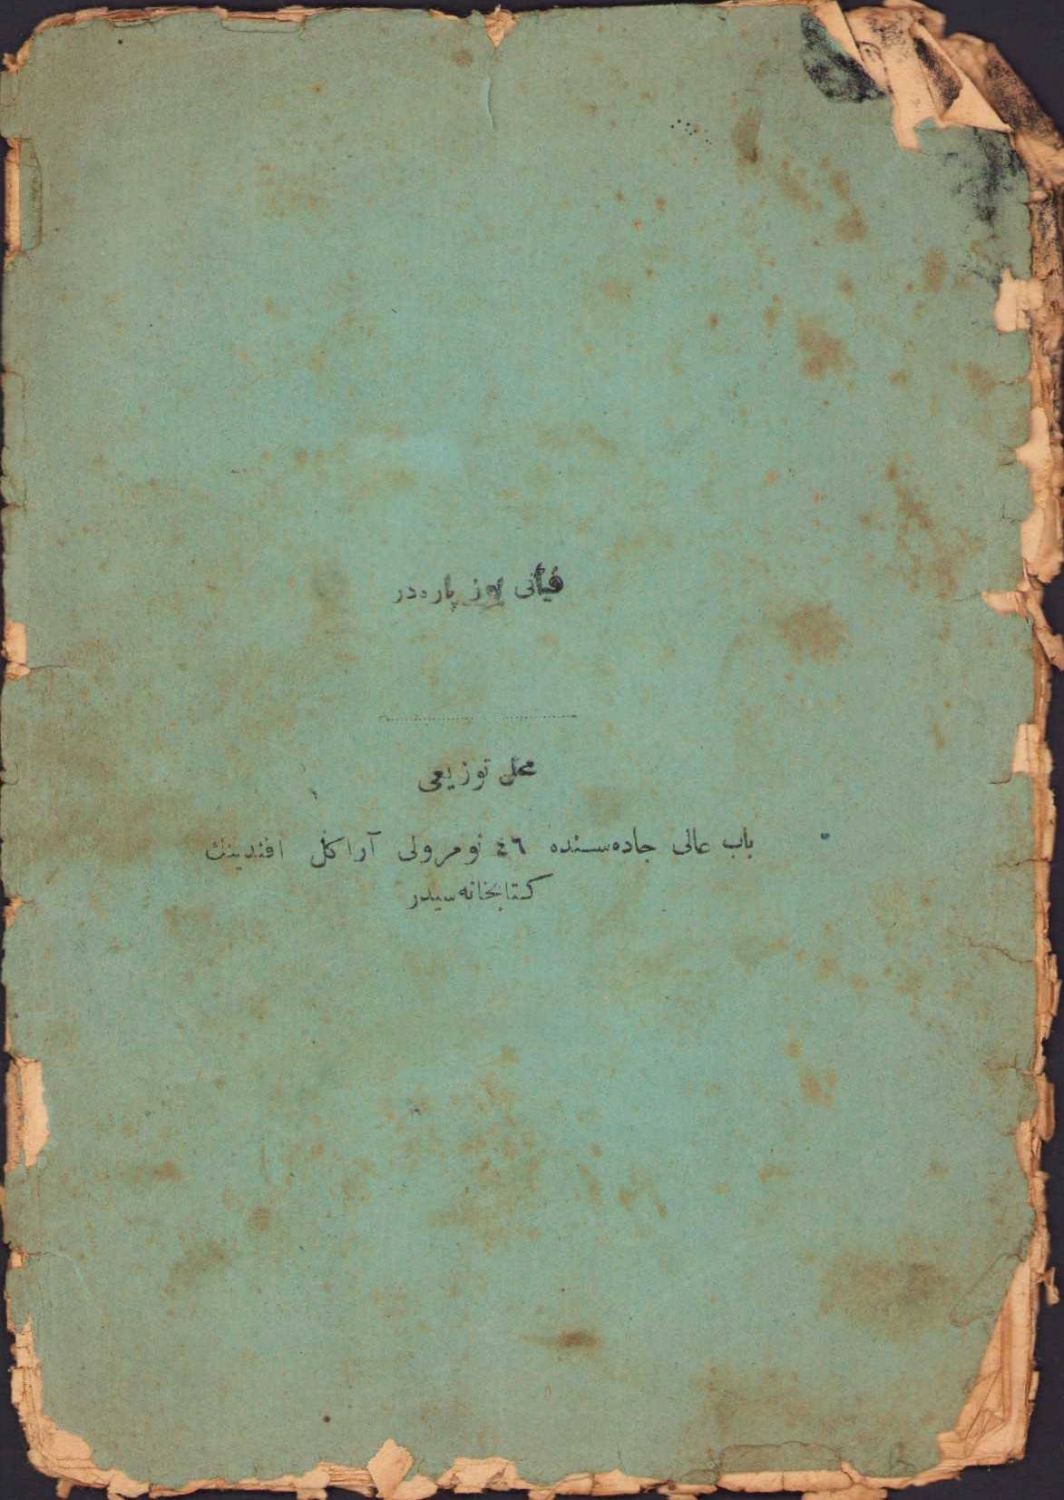 فیأتی یوز پاره‌در
محل توزیعی
باب عالی جاده‌سنده ٤٦ نومرولی آراكل افندینك
كتابخانه‌سیدر